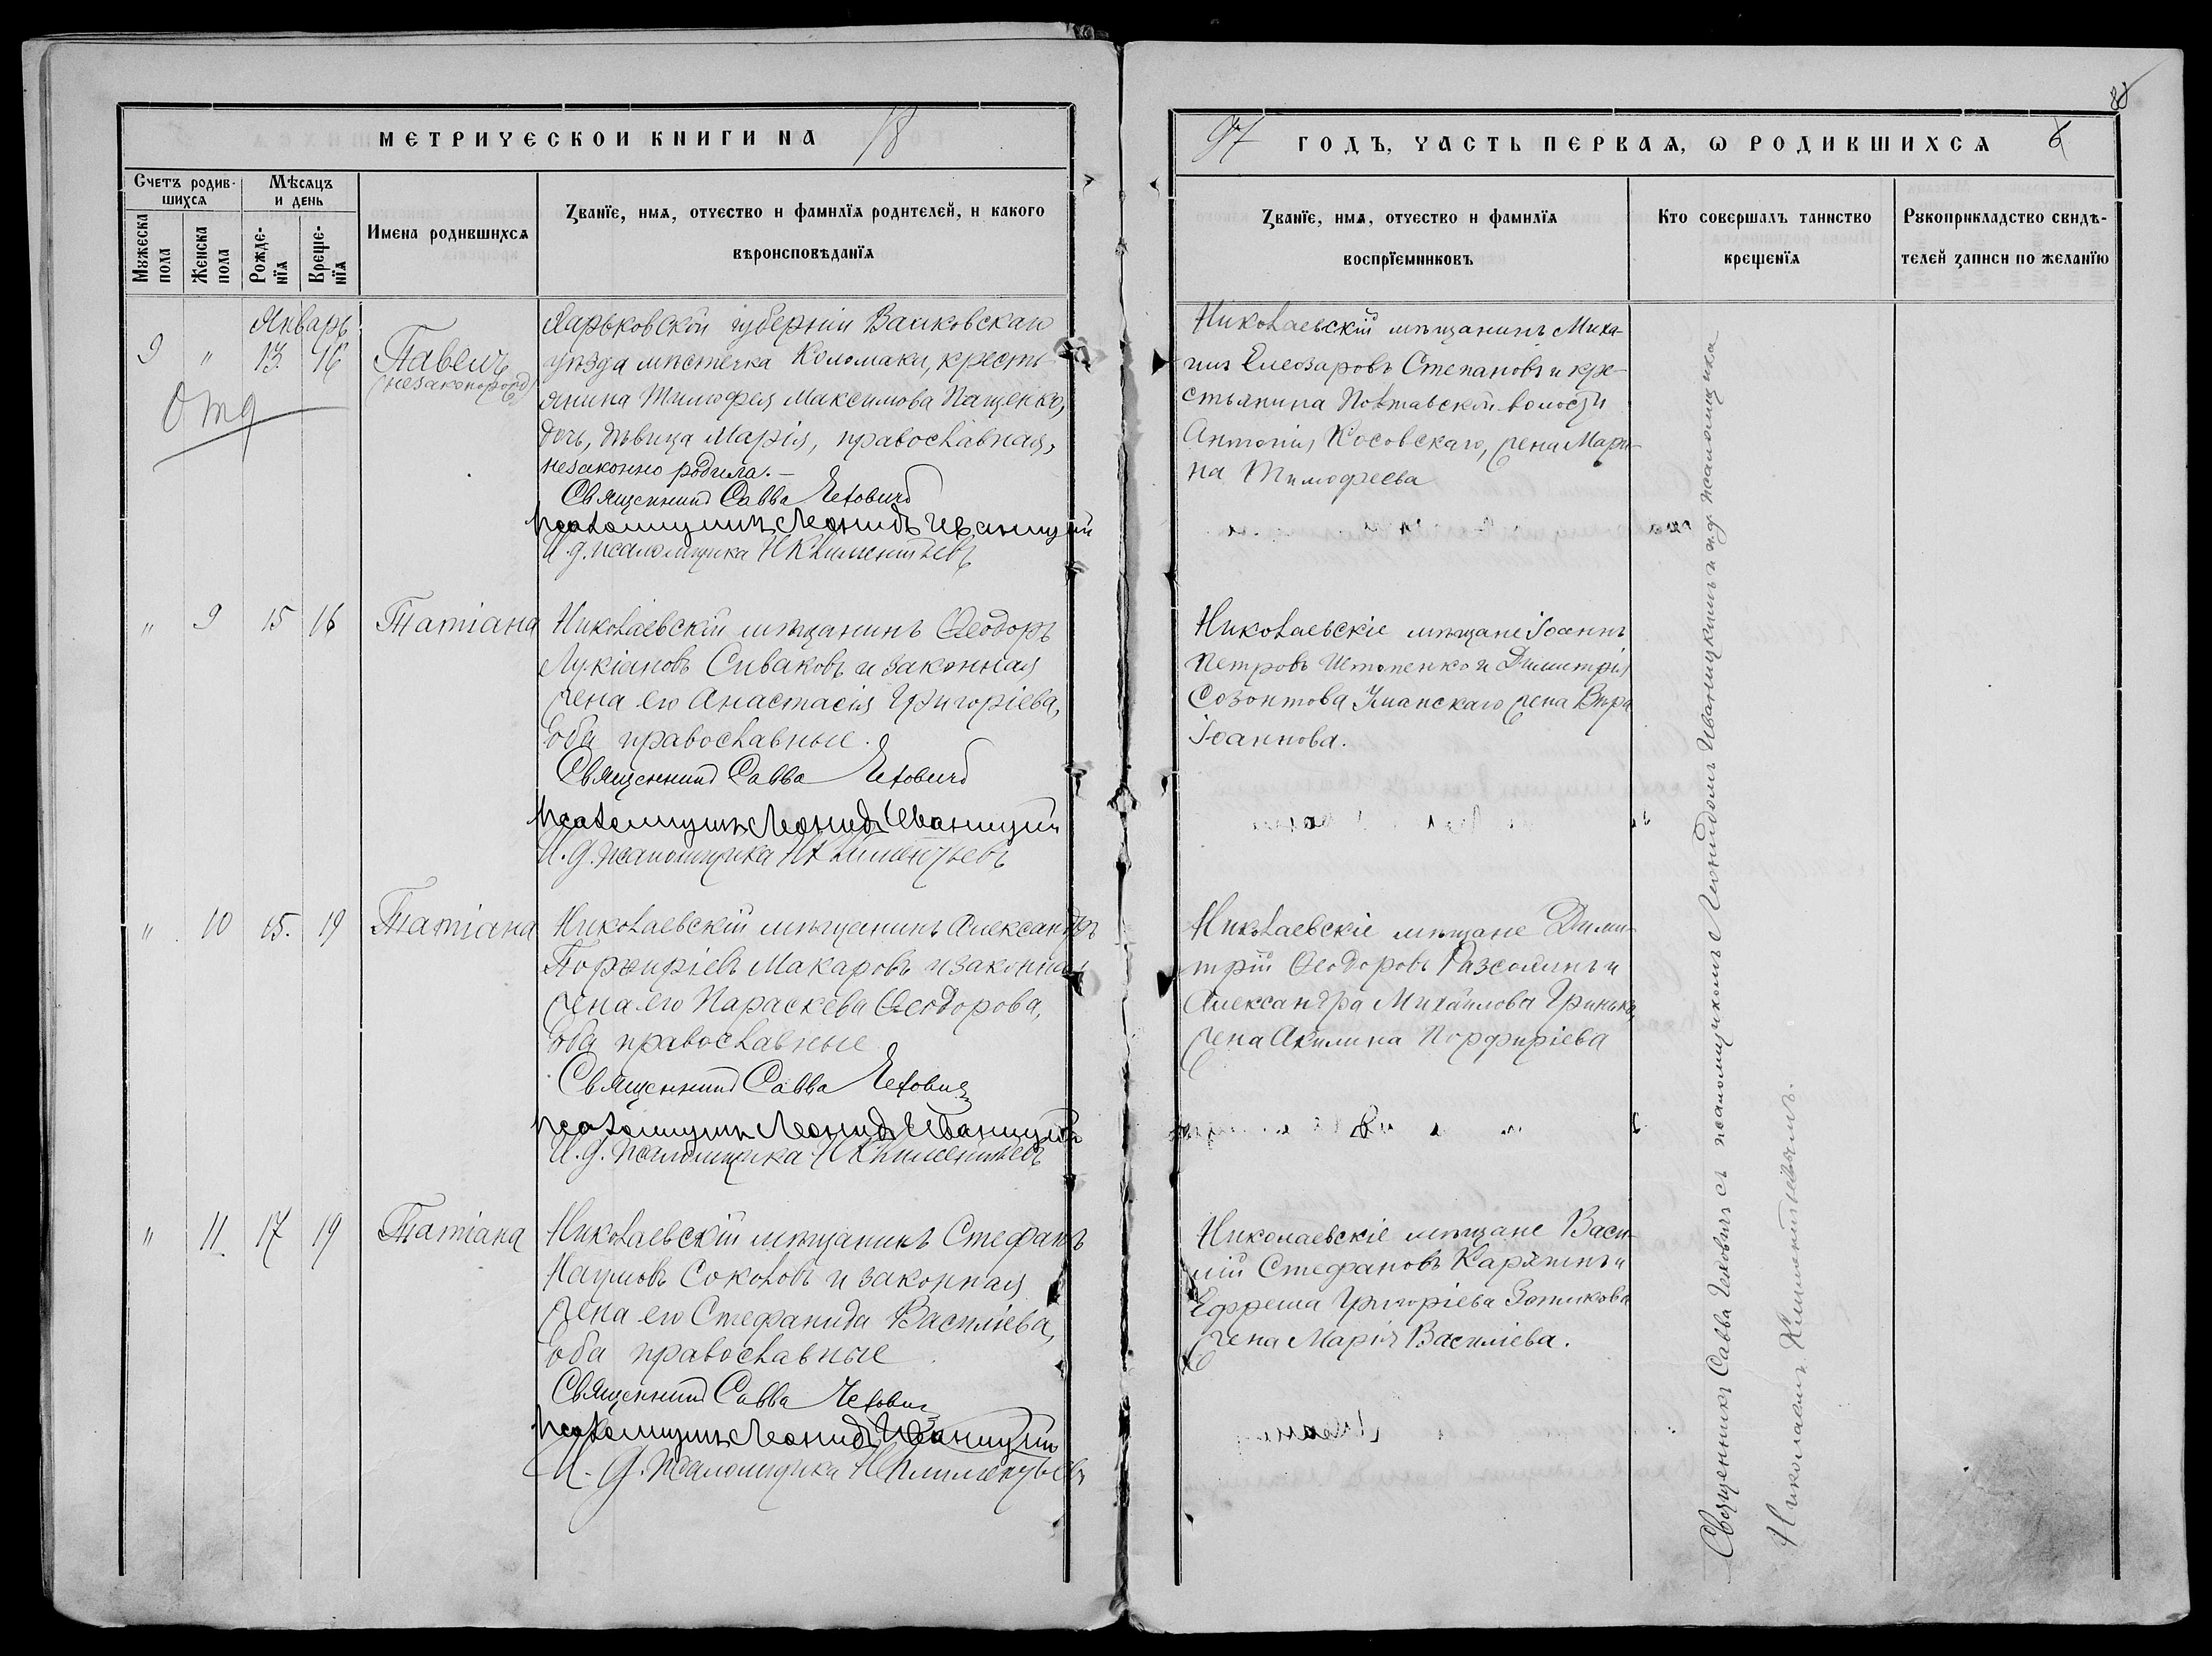 МЕТРИЧЕСКОЙ КНИГИ НА 18
97 ГОДЪ, ЧАСТЬ ПЕРВАЯ, Ѡ РОДИВШИХСЯ 6
Счетъ родив-
шихся
Мѣсяцъ
и день
Мужеска
пола
Женска
пола
Рожде-
нїя
Креще-
нїя
Имена родившихся
Званїе, имя, отчество и фамилїя родителей, и какого
вѣроисповѣданїя
Званїе, имя, отчество и фамилїя
воспрїемниковъ
Кто совершалъ таинство
крещенїя
Рукоприкладство свидѣ-
телей записи по желанїю
Январь
9 " 13. 16 Павелъ
(незаконорожд)
Отд
Харьковской губерніи Валковскаго
уѣзда мѣстечка Коломаки, кресть-
янина Тимофея Максимова Пащенко,
дочь, дѣвица Марія, православная,
незаконно родила.
Священникъ Савва Чехович
Псаломщикъ Леонидъ Иваницкій
И. д. псаломщика Н Климентьевъ
Николаевскій мѣщанинъ Миха-
илъ Елеозаровъ Степановъ и кре-
стьянина Полтавской волости
Антонія Косовскаго, жена Мари-
на Тимофеева
" 9 15 16 Татіана
Николаевскій мѣщанинъ Ѳеодоръ
Лукіановъ Сиваковъ и законная
жена его Анастасія Григоріева,
оба православные.
Священникъ Савва Чехович
Псаломщикъ Леонидъ Иваницкій
И. д. псаломщика Н Климентьевъ
Николаевскіе мѣщане Іоаннъ
Петровъ Истопенко и Димитрія
Созонтова Уманскаго жена Вѣра
Іоаннова.
" 10 15. 19 Татіана
Николаевскій мѣщанинъ Александръ
Порфиріевъ Макаровъ и законная
жена его Параскева Ѳеодорова,
оба православные
Священникъ Савва Чехович
Псаломщикъ Леонидъ Иваницкій
И. д. псаломщика Н Климентьевъ
Николаевскіе мѣщане Дими-
трій Ѳеодоровъ Разсолинъ и
Александра Михаилова Гринько,
жена Акилина Порфиріева
" 11. 17 19 Татіана
Николаевскій мѣщанинъ Стефанъ
Наумовъ Соколовъ и законная
жена его Стефанида Василіева,
оба православные
Священникъ Савва Чехович
Псаломщикъ Леонидъ Иваницкій
И. д. псаломщика Н Климентьевъ
Николаевскіе мѣщане Васи-
лій Стефановъ Карякинъ и
Ефрема Григоріева Зотикова
жена Марія Василіева.
Священникъ Савва Чеховичъ съ псаломщикомъ Леонидомъ Иваницкимъ и и. д. псаломщика
Николаемъ Климентьевымъ.